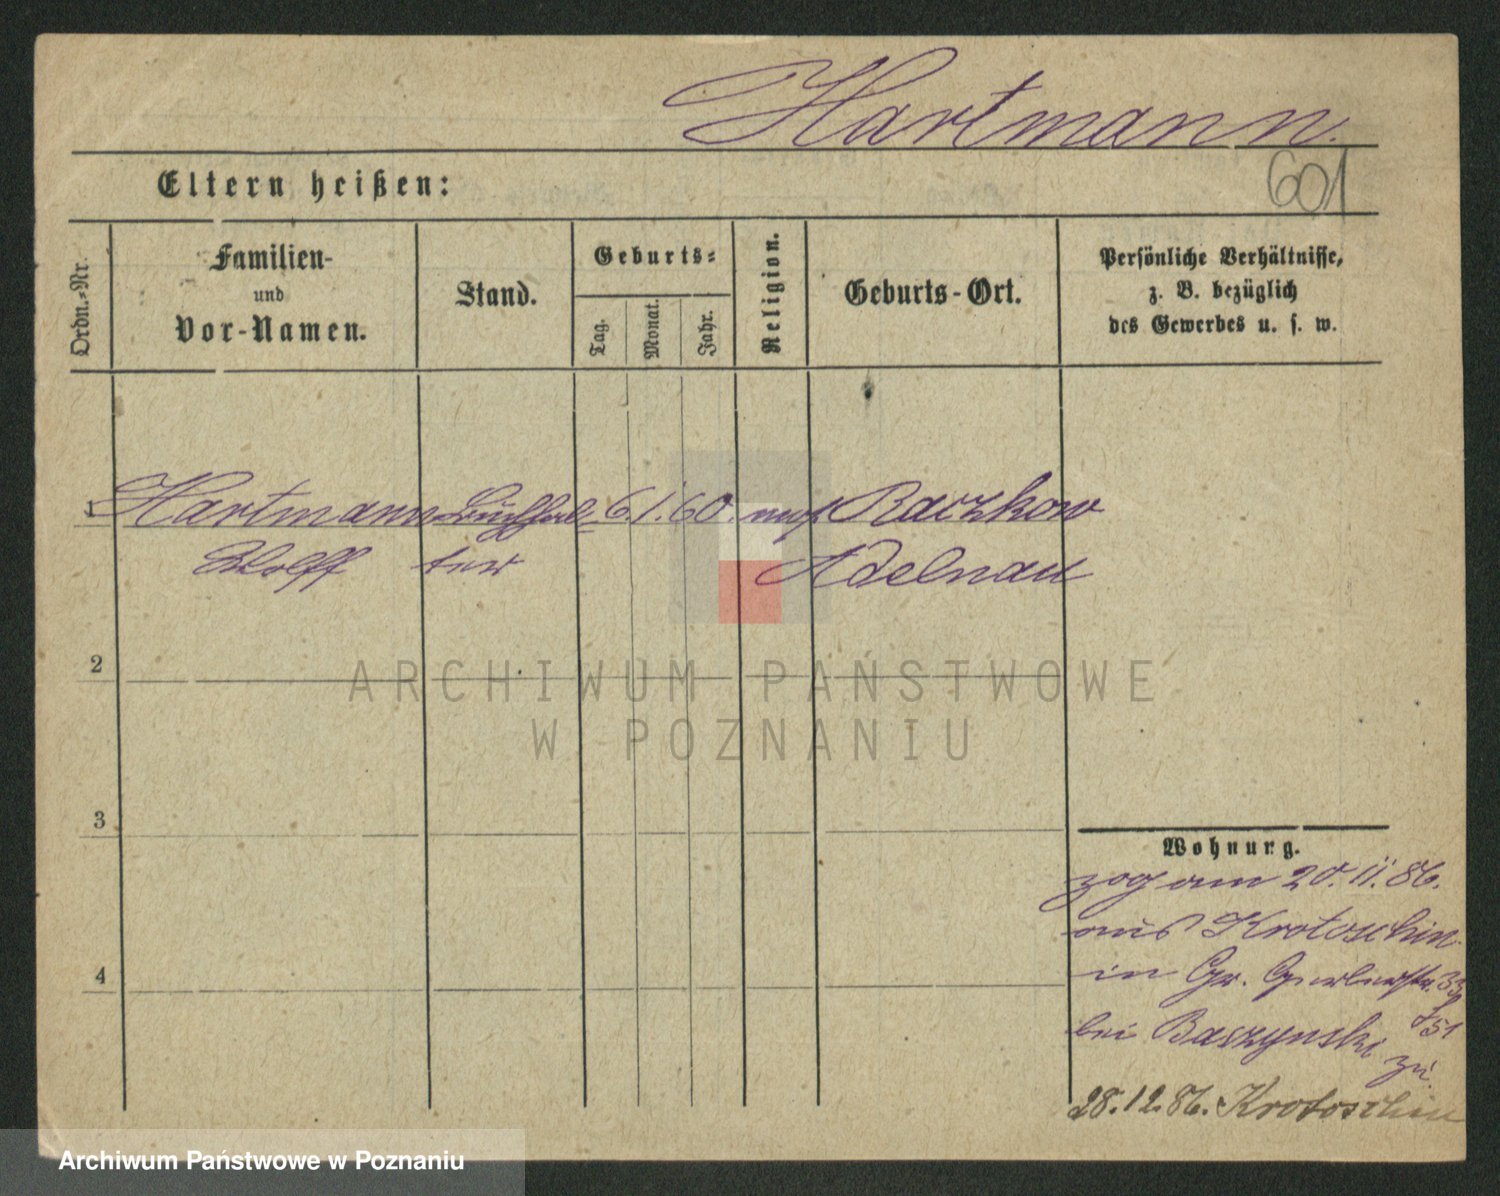 Hartmann.
601
Eltern heißen:
Ordn.-Nr.
Familien-
und
Vor-Namen.
Stand.
Geburts-
Tag.
Monat.
Jahr.
Religion.
Geburts-Ort.
Persönliche Verhältnisse,
z. B. bezüglich
des Gewerbes u. s. w.
1 Hartmann Buchhal= 6. 1. 60. mos. Raczkow
Wolff ter Adelnau
2
ARCHIWUM PAŃSTWOWE
W POZNANIU
3
4
Wohnung.
zog am 20. 11. 86.
aus Krotoschin
in Gr. Gerberstr. 33
bei Baszynski zu.
28.12.86. Krotoschin
Archiwum Państwowe w Poznaniu